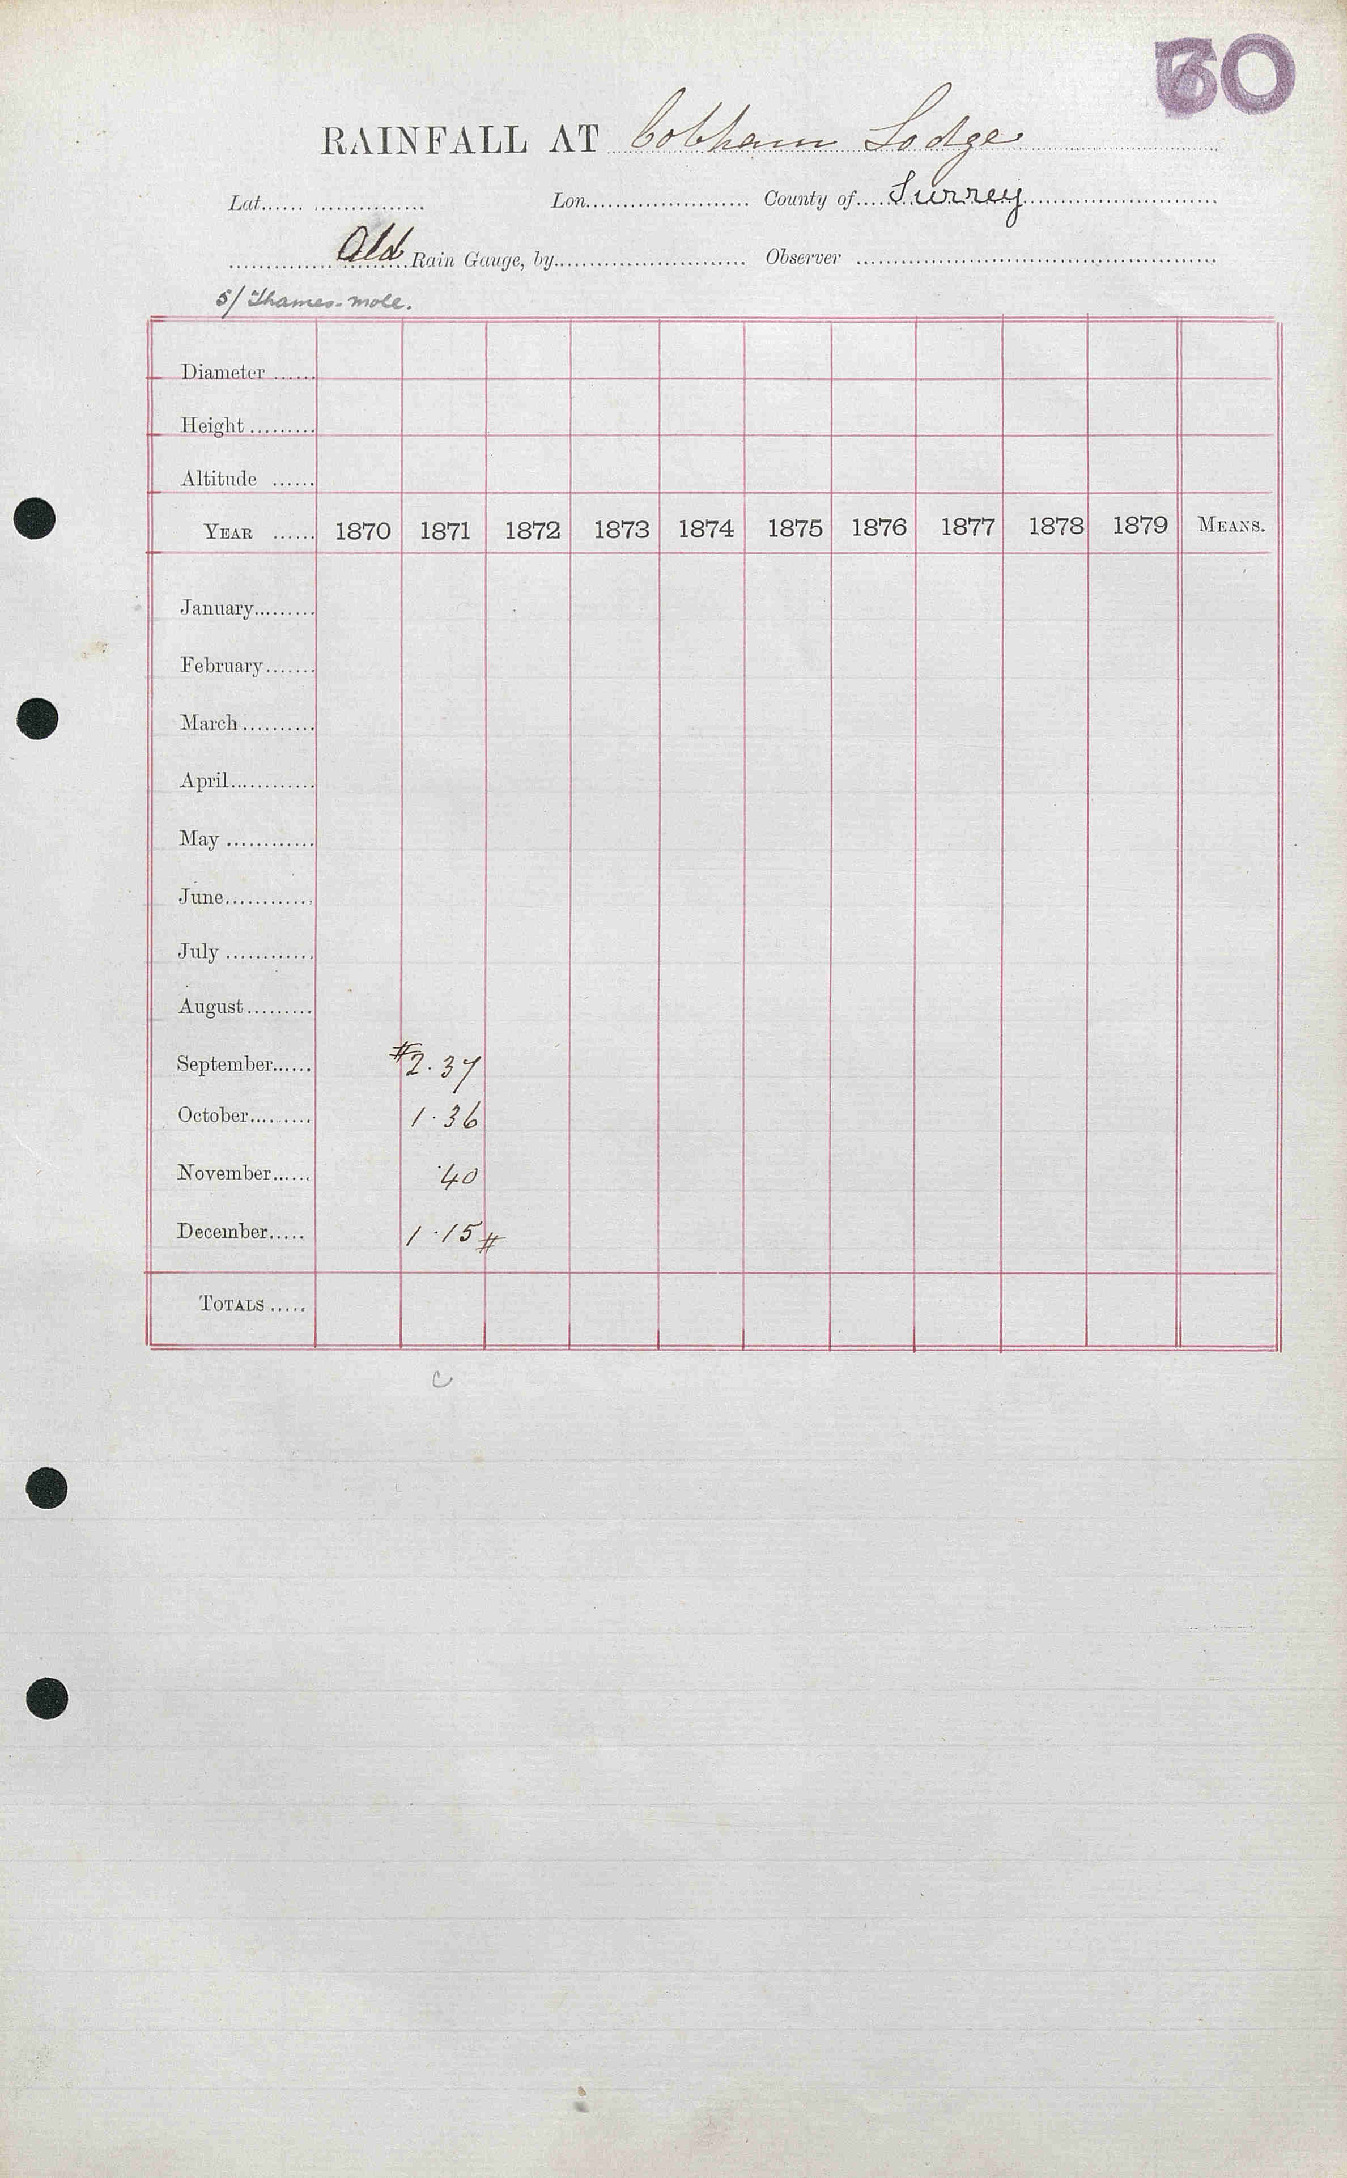 60
RAINFALL AT Cobham Lodge
Lat. Lon. County of Surrey
Old Rain Gauge, by Observer
5/ Thames-Mole.
Diameter
Height
Altitude
YEAR 1870 1871 1872 1873 1874 1875 1876 1877 1878 1879 MEANS.
January
February
March
April
May
June
July
August
September #2.37
October 1.36
November .40
December 1.15#
TOTALS
C